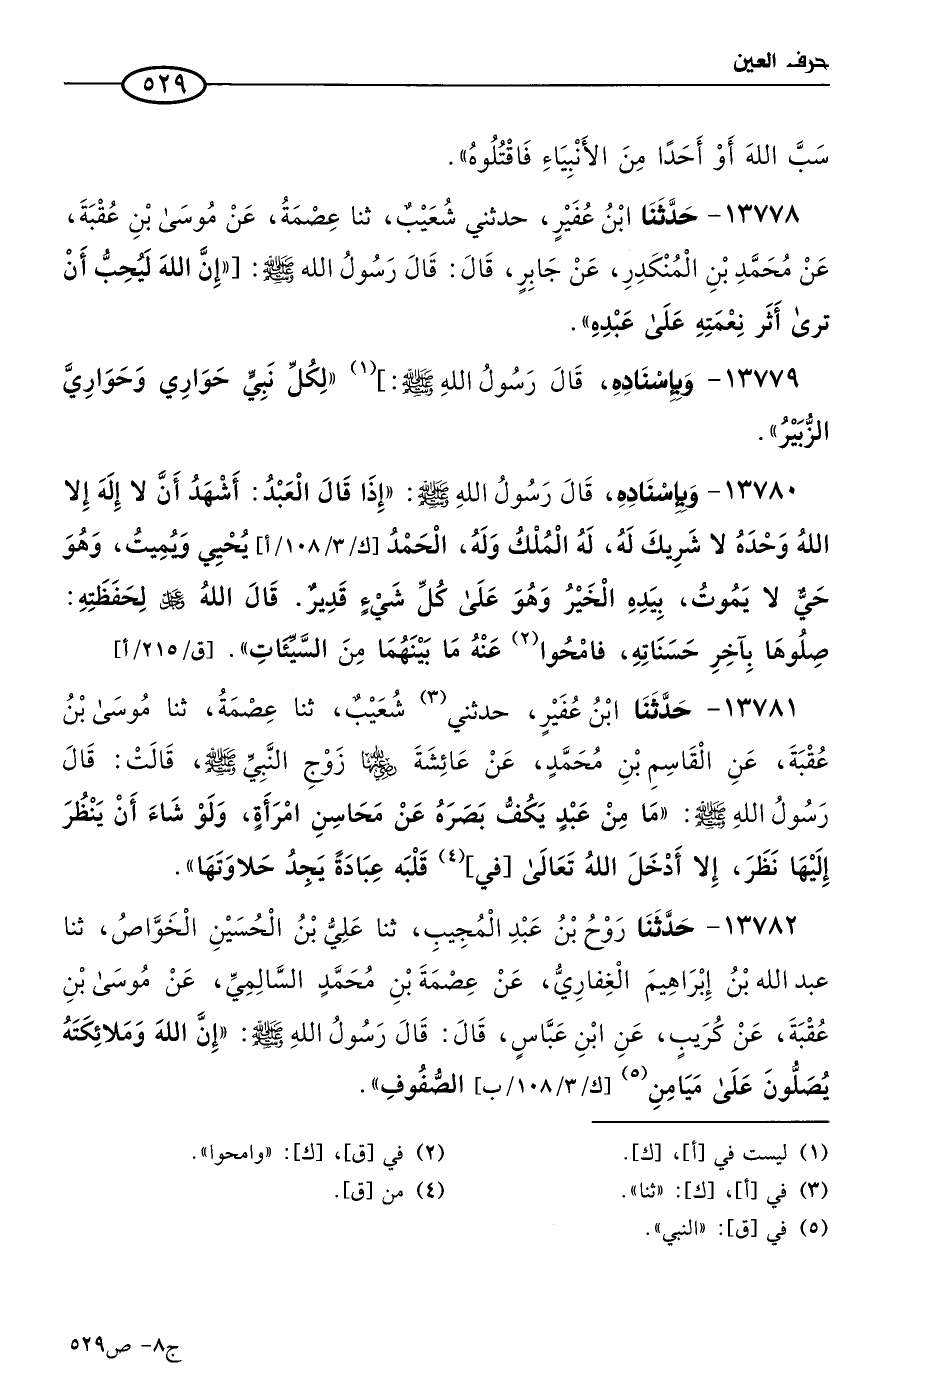 حرف العين
٥٢٩
سَبَّ اللهَ أَوْ أَحَدًا مِنَ الأَنْبِيَاءِ فَاقْتُلُوهُ».
١٣٧٧٨- حَدَّثَنَا ابْنُ عُفَيْرٍ، حدثني شُعَيْبٌ، ثنا عِصْمَةُ، عَنْ مُوسَىٰ بْنِ عُقْبَةَ،
عَنْ مُحَمَّدِ بْنِ الْمُنْكَدِرِ، عَنْ جَابِرٍ، قَالَ: قَالَ رَسُولُ الله ﷺ: [«إِنَّ اللهَ لَيُحِبُّ أَنْ
ترىٰ أَثَر نِعْمَتِهِ عَلَىٰ عَبْدِهِ».
١٣٧٧٩- وَبِإِسْنَادِهِ، قَالَ رَسُولُ اللهِ ﷺ:](١) «لِكُلِّ نَبِيٍّ حَوَارِي وَحَوَارِيَّ
الزُّبَيْرُ».
١٣٧٨٠- وَبِإِسْنَادِهِ، قَالَ رَسُولُ اللهِ ﷺ: «إِذَا قَالَ الْعَبْدُ: أَشْهَدُ أَنَّ لا إِلَهَ إِلا
اللهُ وَحْدَهُ لا شَرِيكَ لَهُ، لَهُ الْمُلْكُ وَلَهُ، الْحَمْدُ [ك/١٠٨/٣/أ] يُحْيِي وَيُمِيتُ، وَهُوَ
حَيٌّ لا يَمُوتُ، بِيَدِهِ الْخَيْرُ وَهُوَ عَلَىٰ كُلِّ شَيْءٍ قَدِيرٌ. قَالَ اللهُ ﷿ لِحَفَظَتِهِ:
صِلُوهَا بِآخِرِ حَسَنَاتِهِ، فامْحُوا(٢) عَنْهُ مَا بَيْنَهُمَا مِنَ السَّيِّئَاتِ». [ق/٢١٥/أ]
١٣٧٨١- حَدَّثَنَا ابْنُ عُفَيْرٍ، حدثني(٣) شُعَيْبٌ، ثنا عِصْمَةُ، ثنا مُوسَىٰ بْنُ
عُقْبَةَ، عَنِ الْقَاسِمِ بْنِ مُحَمَّدٍ، عَنْ عَائِشَةَ رضي الله عنها زَوْجِ النَّبِيِّ ﷺ، قَالَتْ: قَالَ
رَسُولُ اللهِ ﷺ: «مَا مِنْ عَبْدٍ يَكُفُّ بَصَرَهُ عَنْ مَحَاسِنِ امْرَأَةٍ، وَلَوْ شَاءَ أَنْ يَنْظُرَ
إِلَيْهَا نَظَرَ، إِلا أَدْخَلَ اللهُ تَعَالَىٰ [في](٤) قَلْبَه عِبَادَةً يَجِدُ حَلاوَتَهَا».
١٣٧٨٢- حَدَّثَنَا رَوْحُ بْنُ عَبْدِ الْمُجِيبِ، ثنا عَلِيُّ بْنُ الْحُسَيْنِ الْخَوَّاصُ، ثنا
عبد الله بْنُ إِبْرَاهِيمَ الْغِفَارِيُّ، عَنْ عِصْمَةَ بْنِ مُحَمَّدٍ السَّالِمِيِّ، عَنْ مُوسَىٰ بْنِ
عُقْبَةَ، عَنْ كُرَيبٍ، عَنِ ابْنِ عَبَّاسٍ، قَالَ: قَالَ رَسُولُ اللهِ ﷺ: «إِنَّ اللهَ وَمَلائِكَتَهُ
يُصَلُّونَ عَلَىٰ مَيَامِنِ(٥) [ك/١٠٨/٣/ب] الصُّفُوفِ».
(١) ليست في [أ]، [ك]. (٢) في [ق]، [ك]: «وامحوا».
(٣) في [أ]، [ك]: «ثنا». (٤) من [ق].
(٥) في [ق]: «النبي».
ج٨- ص٥٢٩